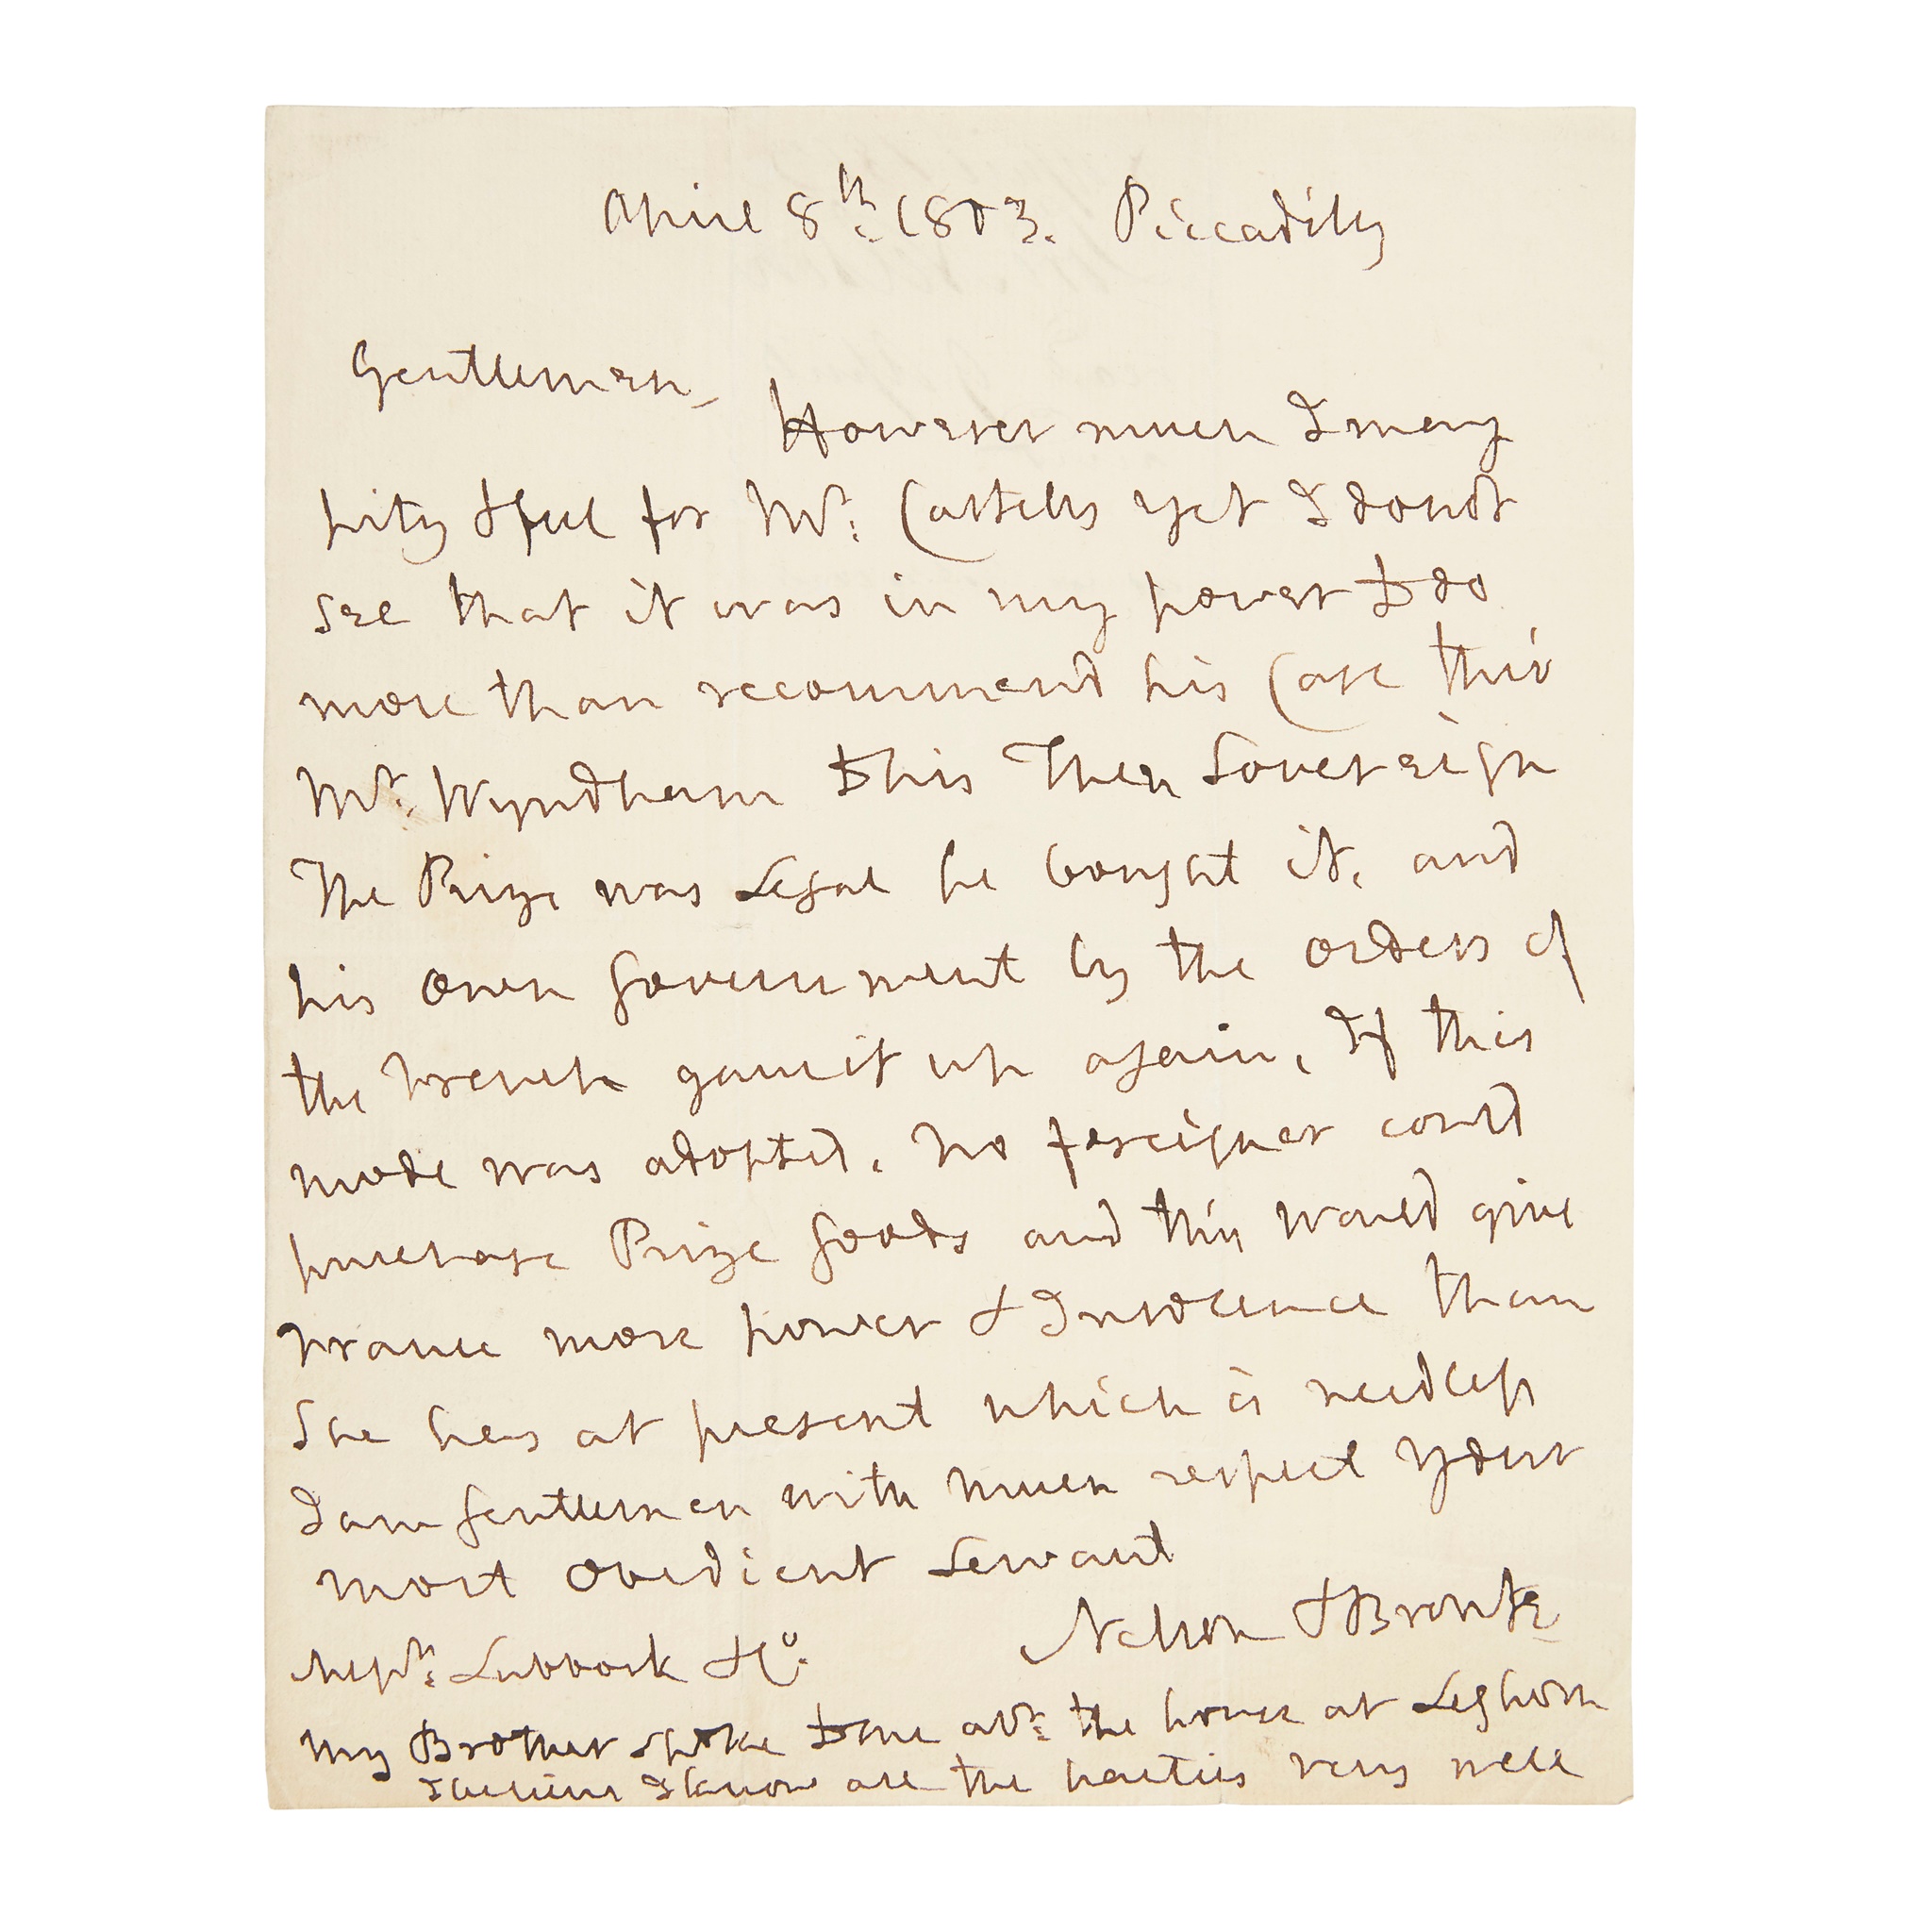 April 8th: 1803. Piccadilly
Gentlemen,
However much I may
pity & feel for Mr: Castelli yet I dont
see that it was in my power to do
more than recommend his Case thro'
Mr: Wyndham to his Then Sovereign
The Prize was Legal he bought it, and
his own Government by the orders of
the French gave it up again, If this
mode was adopted, no foreigner could
purchase Prize Goods and this would give
France more power & Insolence than
She has at present which is needless
I am Gentlemen with much respect your
most obedient Servant
Nelson & Bronte
Messrs: Lubbock & Co:
My Brother spoke to me abt: the house at Leghorn
I know all the parties very well